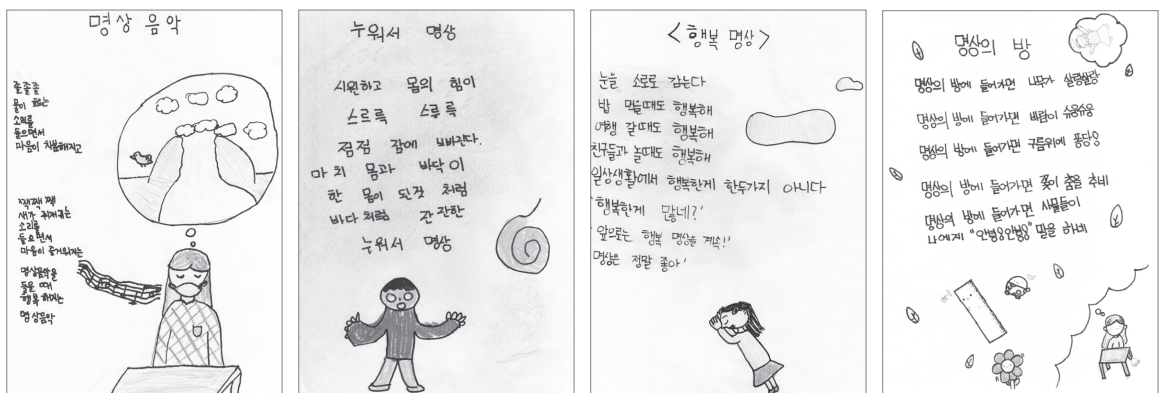 명상 음악
졸졸졸
물이 흐르는
소리를
들으면서
마음이 차분해지고
짹짹 짹!
새가 지저귀는
소리를
들으면서
마음이 즐거워지는
명상음악을
들을 때
행복해지는
명상음악
누워서 명상
시원하고 몸의 힘이
스르륵 스루륵
점점 잠에 빠진다.
마치 몸과 바닥이
한 몸이 된것 처럼
바다처럼 잔잔한
누워서 명상
<행복 명상>
눈을 스르로 감는다
밥 먹을때도 행복해
여행 갈때도 행복해
친구들과 놀때도 행복해
일상생활에서 행복한게 한두가지 아니다
'행복한게 많네?'
'앞으로는 행복 명상을 계속!'
명상은 정말 좋아'
명상의 방
명상의 방에 들어가면 나무가 살랑살랑
명상의 방에 들어가면 바람이 슈웅슈웅
명상의 방에 들어가면 구름위에 퐁당퐁당
명상의 방에 들어가면 꽃이 춤을 추네
명상의 방에 들어가면 사물들이
나에게 "안녕안녕" 말을 하네